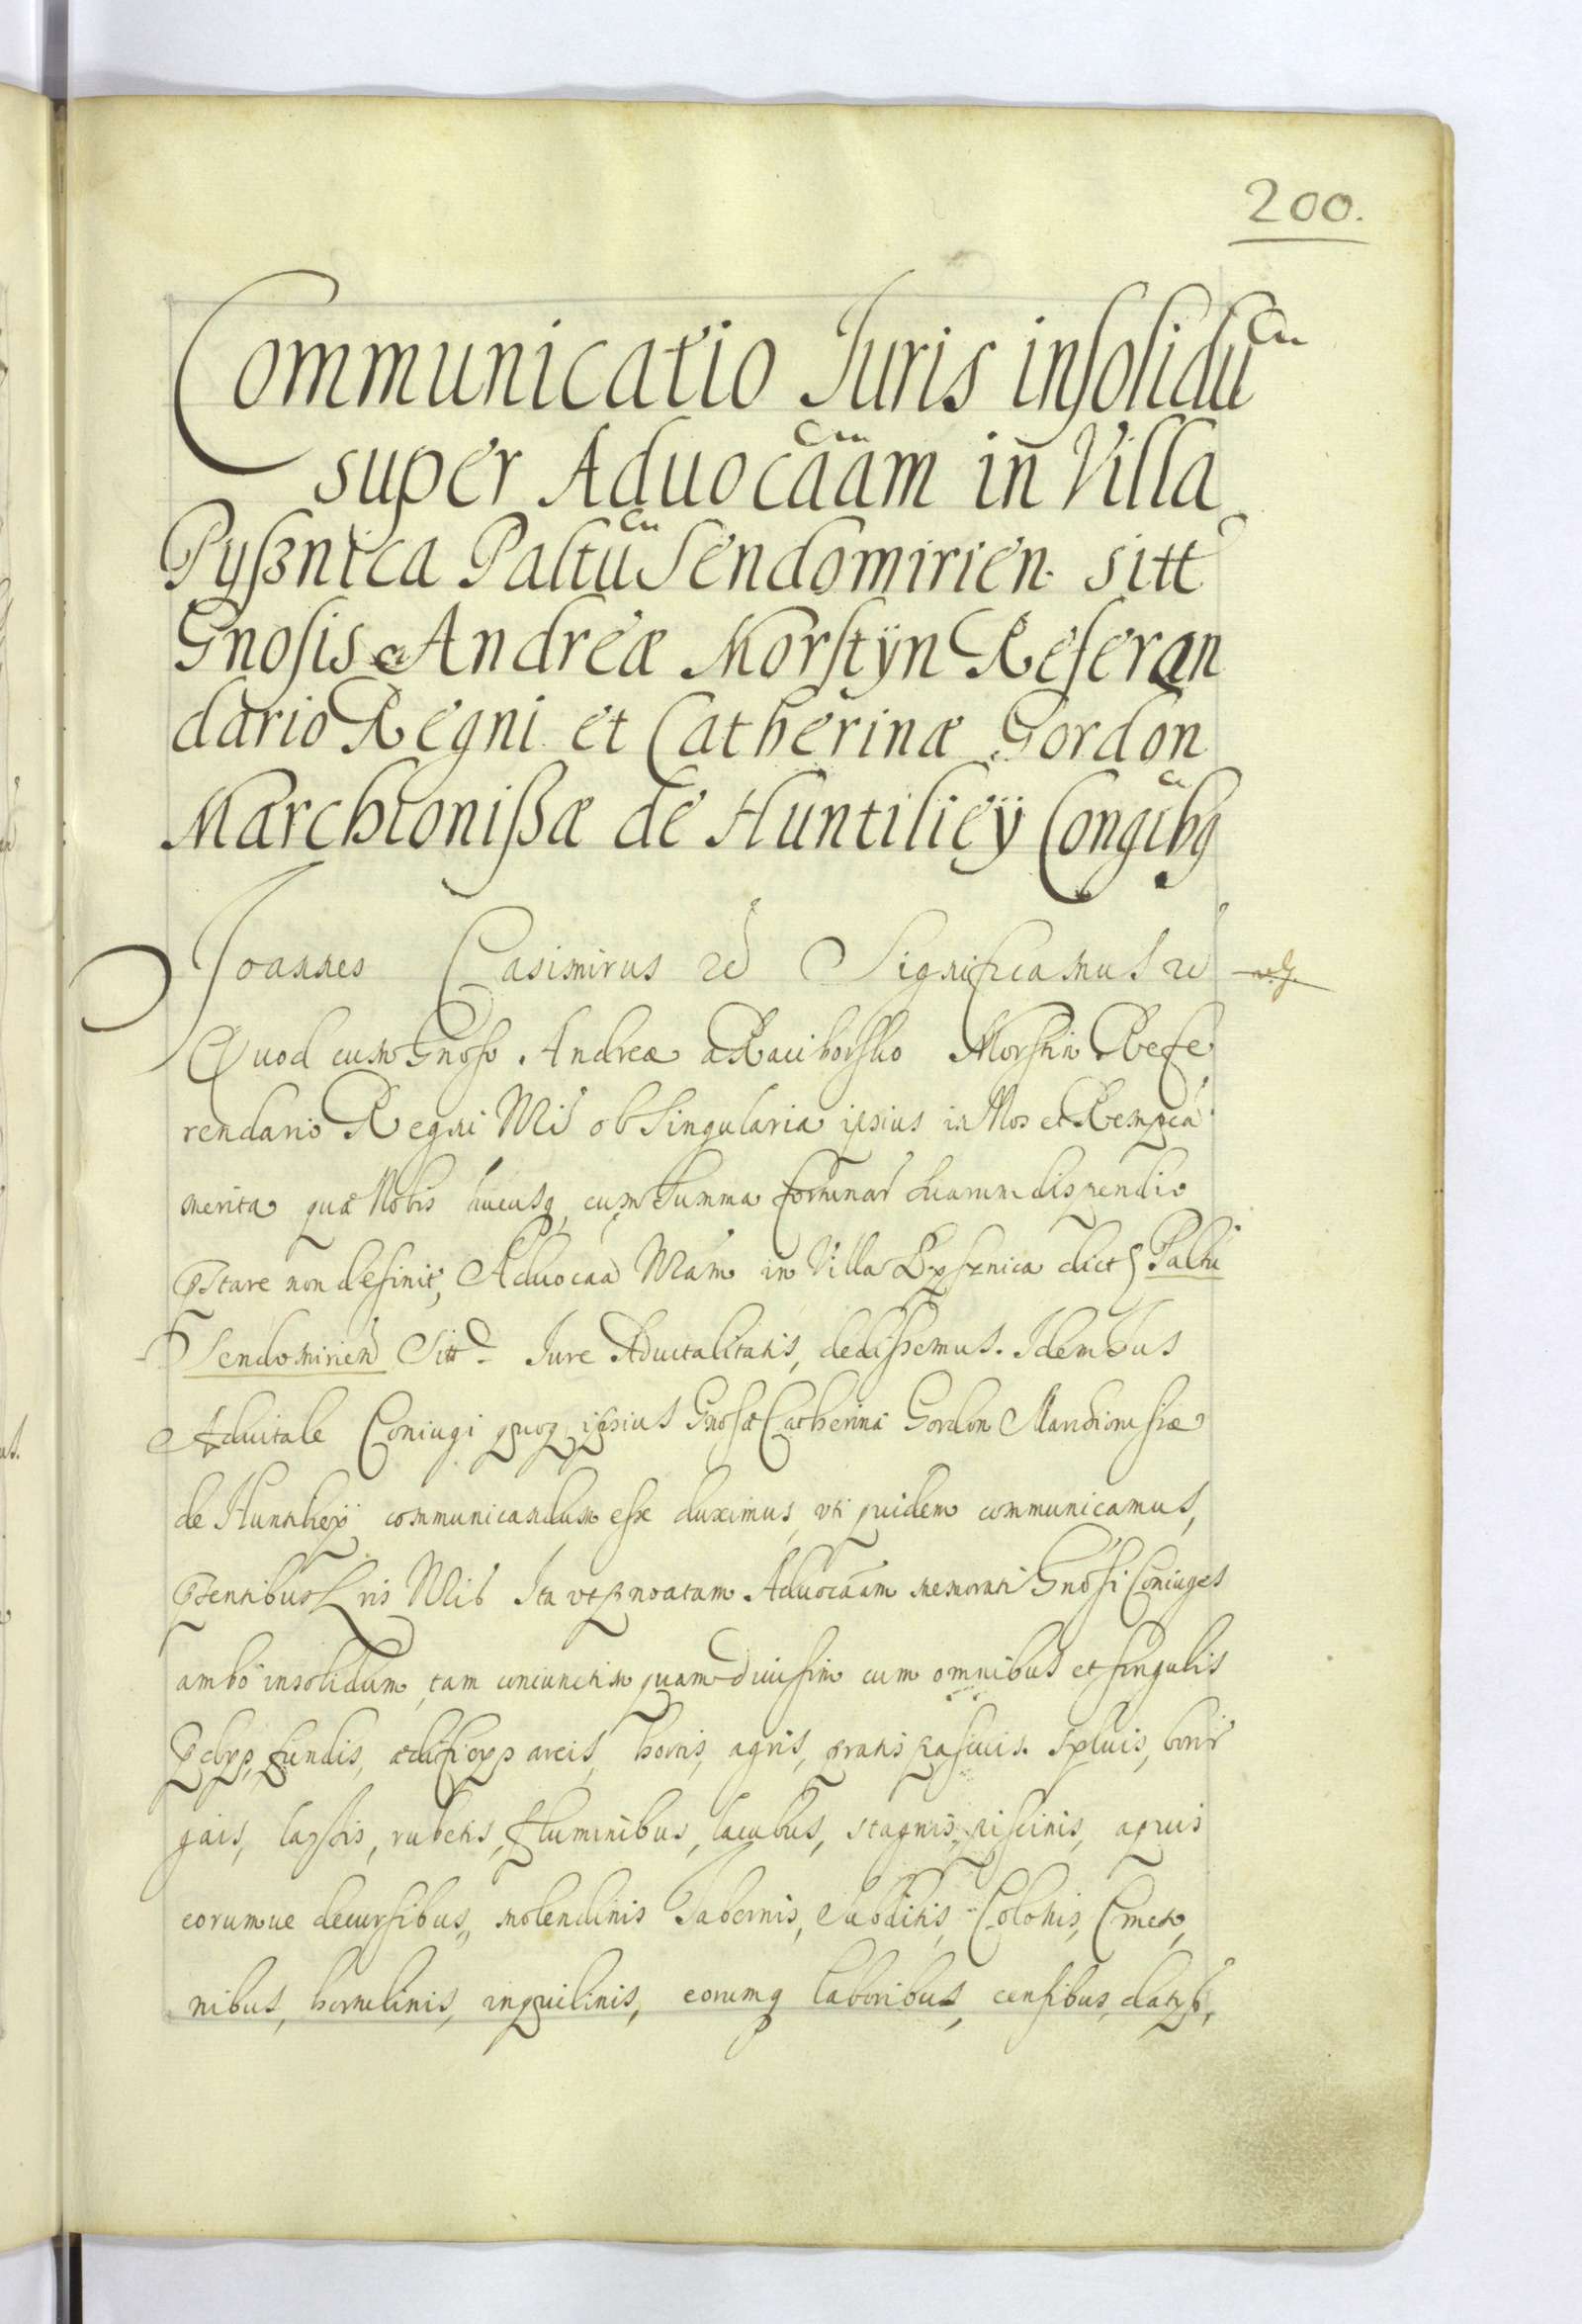 200.
Communicatio Juris insolidũ
super Aduocãam in Villa
Pyszntca Paltũ Sendomirien. sitt
Gnosis Andreæ Morstÿn Referan
dario Regni et Catherinæ Gordon
Marchionissæ de Huntilieÿ Congibq
Joannes Casimirus Significamus
Quod cum Gnoso Andreæ a Raciborsko Morstin Refe
rendario Regni Nrõ ob singularia ipsius in Nos et Rempcã
merita quæ Nobis hucusq cum summa fortunar suarum dispendio
pstare non desinit, Aduocãã Nrãm in Villa Pyssznica dict Paltũ
Sendomirien Sitt Jure Aduitalitatis, dedissemus. Idem Ius
Aduitale Coniugi quoq ipsius Gnosæ Catherinæ Gordon Marchionissæ
de Huntiley communicandum esse duximus, vti quidem communicamus,
psentibus Lris Nris Ita vt pnoatam Aduocãam memorati Gnosi Coniuges
ambo insolidum, tam coniunctim quam diuisim cum omnibus et singulis
pdiys, fundis, ædificiys areis, hortis, agris, pratis pascuis. syluis, borris
gais, laszis, rubetis, fluminibus, lacubus, stagnis, piscinis, aquis
eorumue decursibus, molendinis Tabernis, Subditis, Colonis, Cmeto,
nibus, hortulinis, inquilinis, eorumq laboribus, censibus, datys,